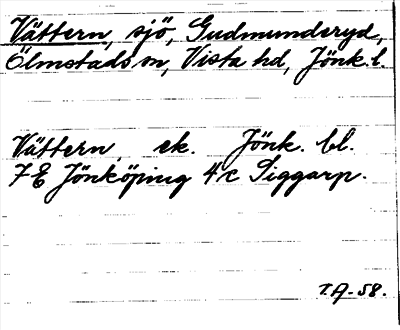 Vättern, sjö, Gudmunderyd,
Ölmstads sn, Vista hd, Jönk. l.
Vättern ek. Jönk. bl.
7 E Jönköping 4 c Siggarp.
T.A-58.